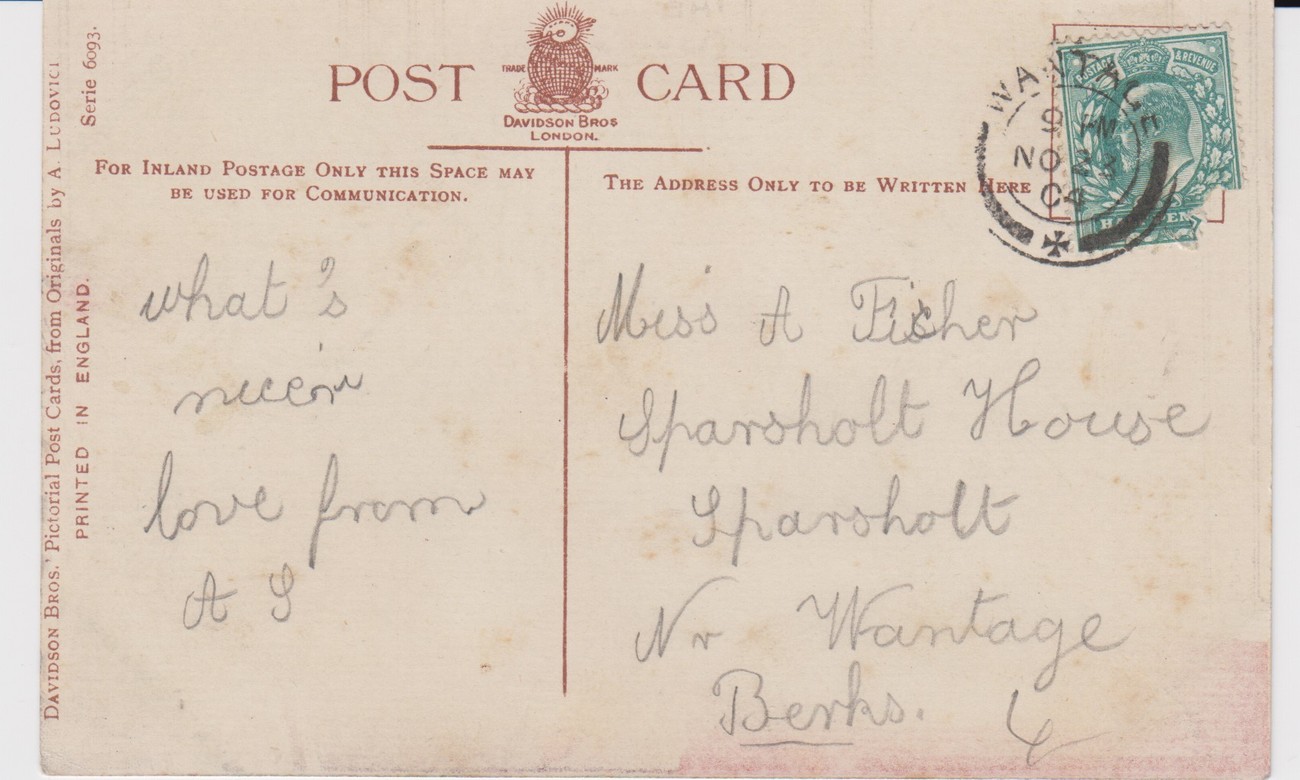 POST CARD
TRADE MARK
DAVIDSON BROS
LONDON.
FOR INLAND POSTAGE ONLY THIS SPACE MAY
BE USED FOR COMMUNICATION.
THE ADDRESS ONLY TO BE WRITTEN HERE
DAVIDSON BROS.' Pictorial Post Cards, from Originals by A. LUDOVICI
Serie 6093.
PRINTED IN ENGLAND.
POSTAGE & REVENUE
WANTAGE
9 PM
NO 23
04
what's
niceer
love from
A S
Miss A Fisher
Sparsholt House
Sparsholt
Nr Wantage
Berks.